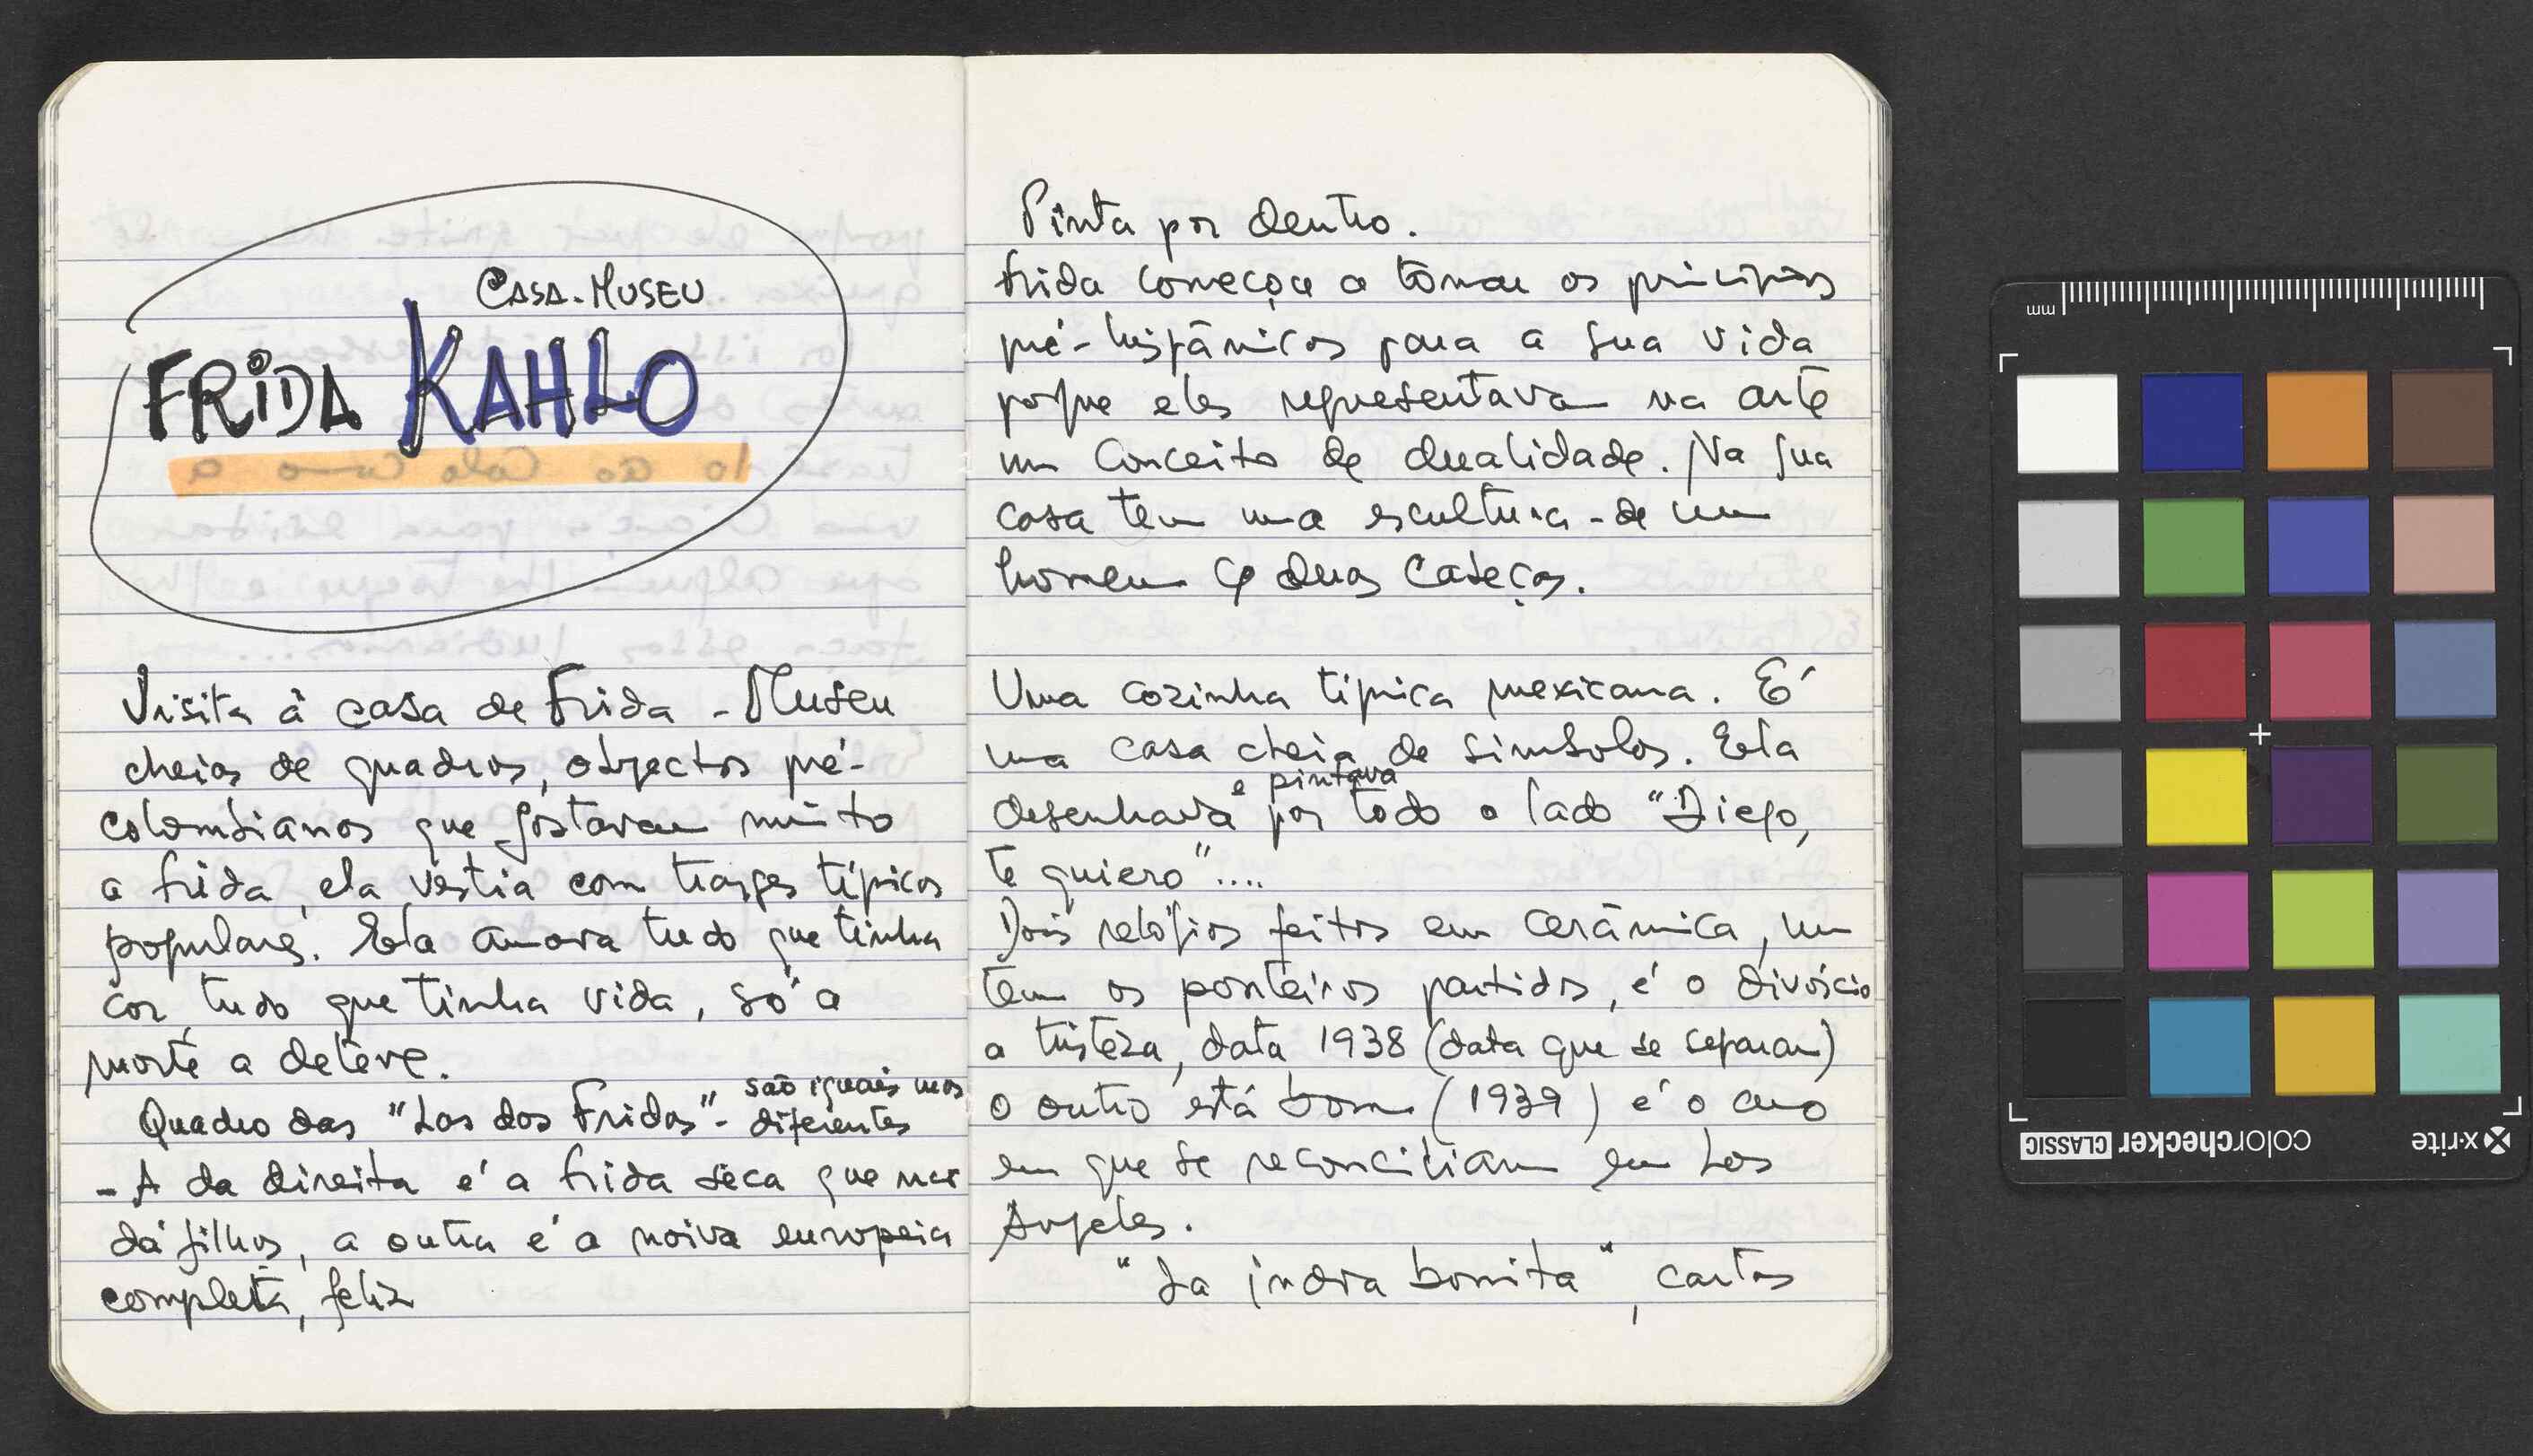 CASA-MUSEU
FRIDA KAHLO
Visita à casa de Frida - Museu
cheios de quadros, objectos pré-
colombianos que gostavam muito
a frida, ela vestia com trages típicos
populares. Ela amava tudo que tinha
cor, tudo que tinha vida, só a
morte a deteve.
são iguais mas
Quadro das "Las dos Fridas" - diferentes
- A da direita é a frida seca que não
dá filhos, a outra é a noiva europeia
completa, feliz
Pinta por dentro.
frida começou a tomar os princípios
pré-hispânicos para a sua vida
porque eles representavam na arte
um conceito de dualidade. Na sua
casa tem uma escultura - de um
homem c/ duas cabeças.
Uma cozinha típica mexicana. É
uma casa cheia de simbolos. Ela
e pintava
desenhava por todo o lado "Diego,
te quiero"....
Dois relógios feitos em cerâmica, um
tem os ponteiros partidos, é o divórcio
a tristeza, data 1938 (data que se separam)
o outro está bom (1939) é o ano
em que se reconciliam em Los
Angeles.
"La indra bonita", cartas
mm
x-rite
colorchecker CLASSIC